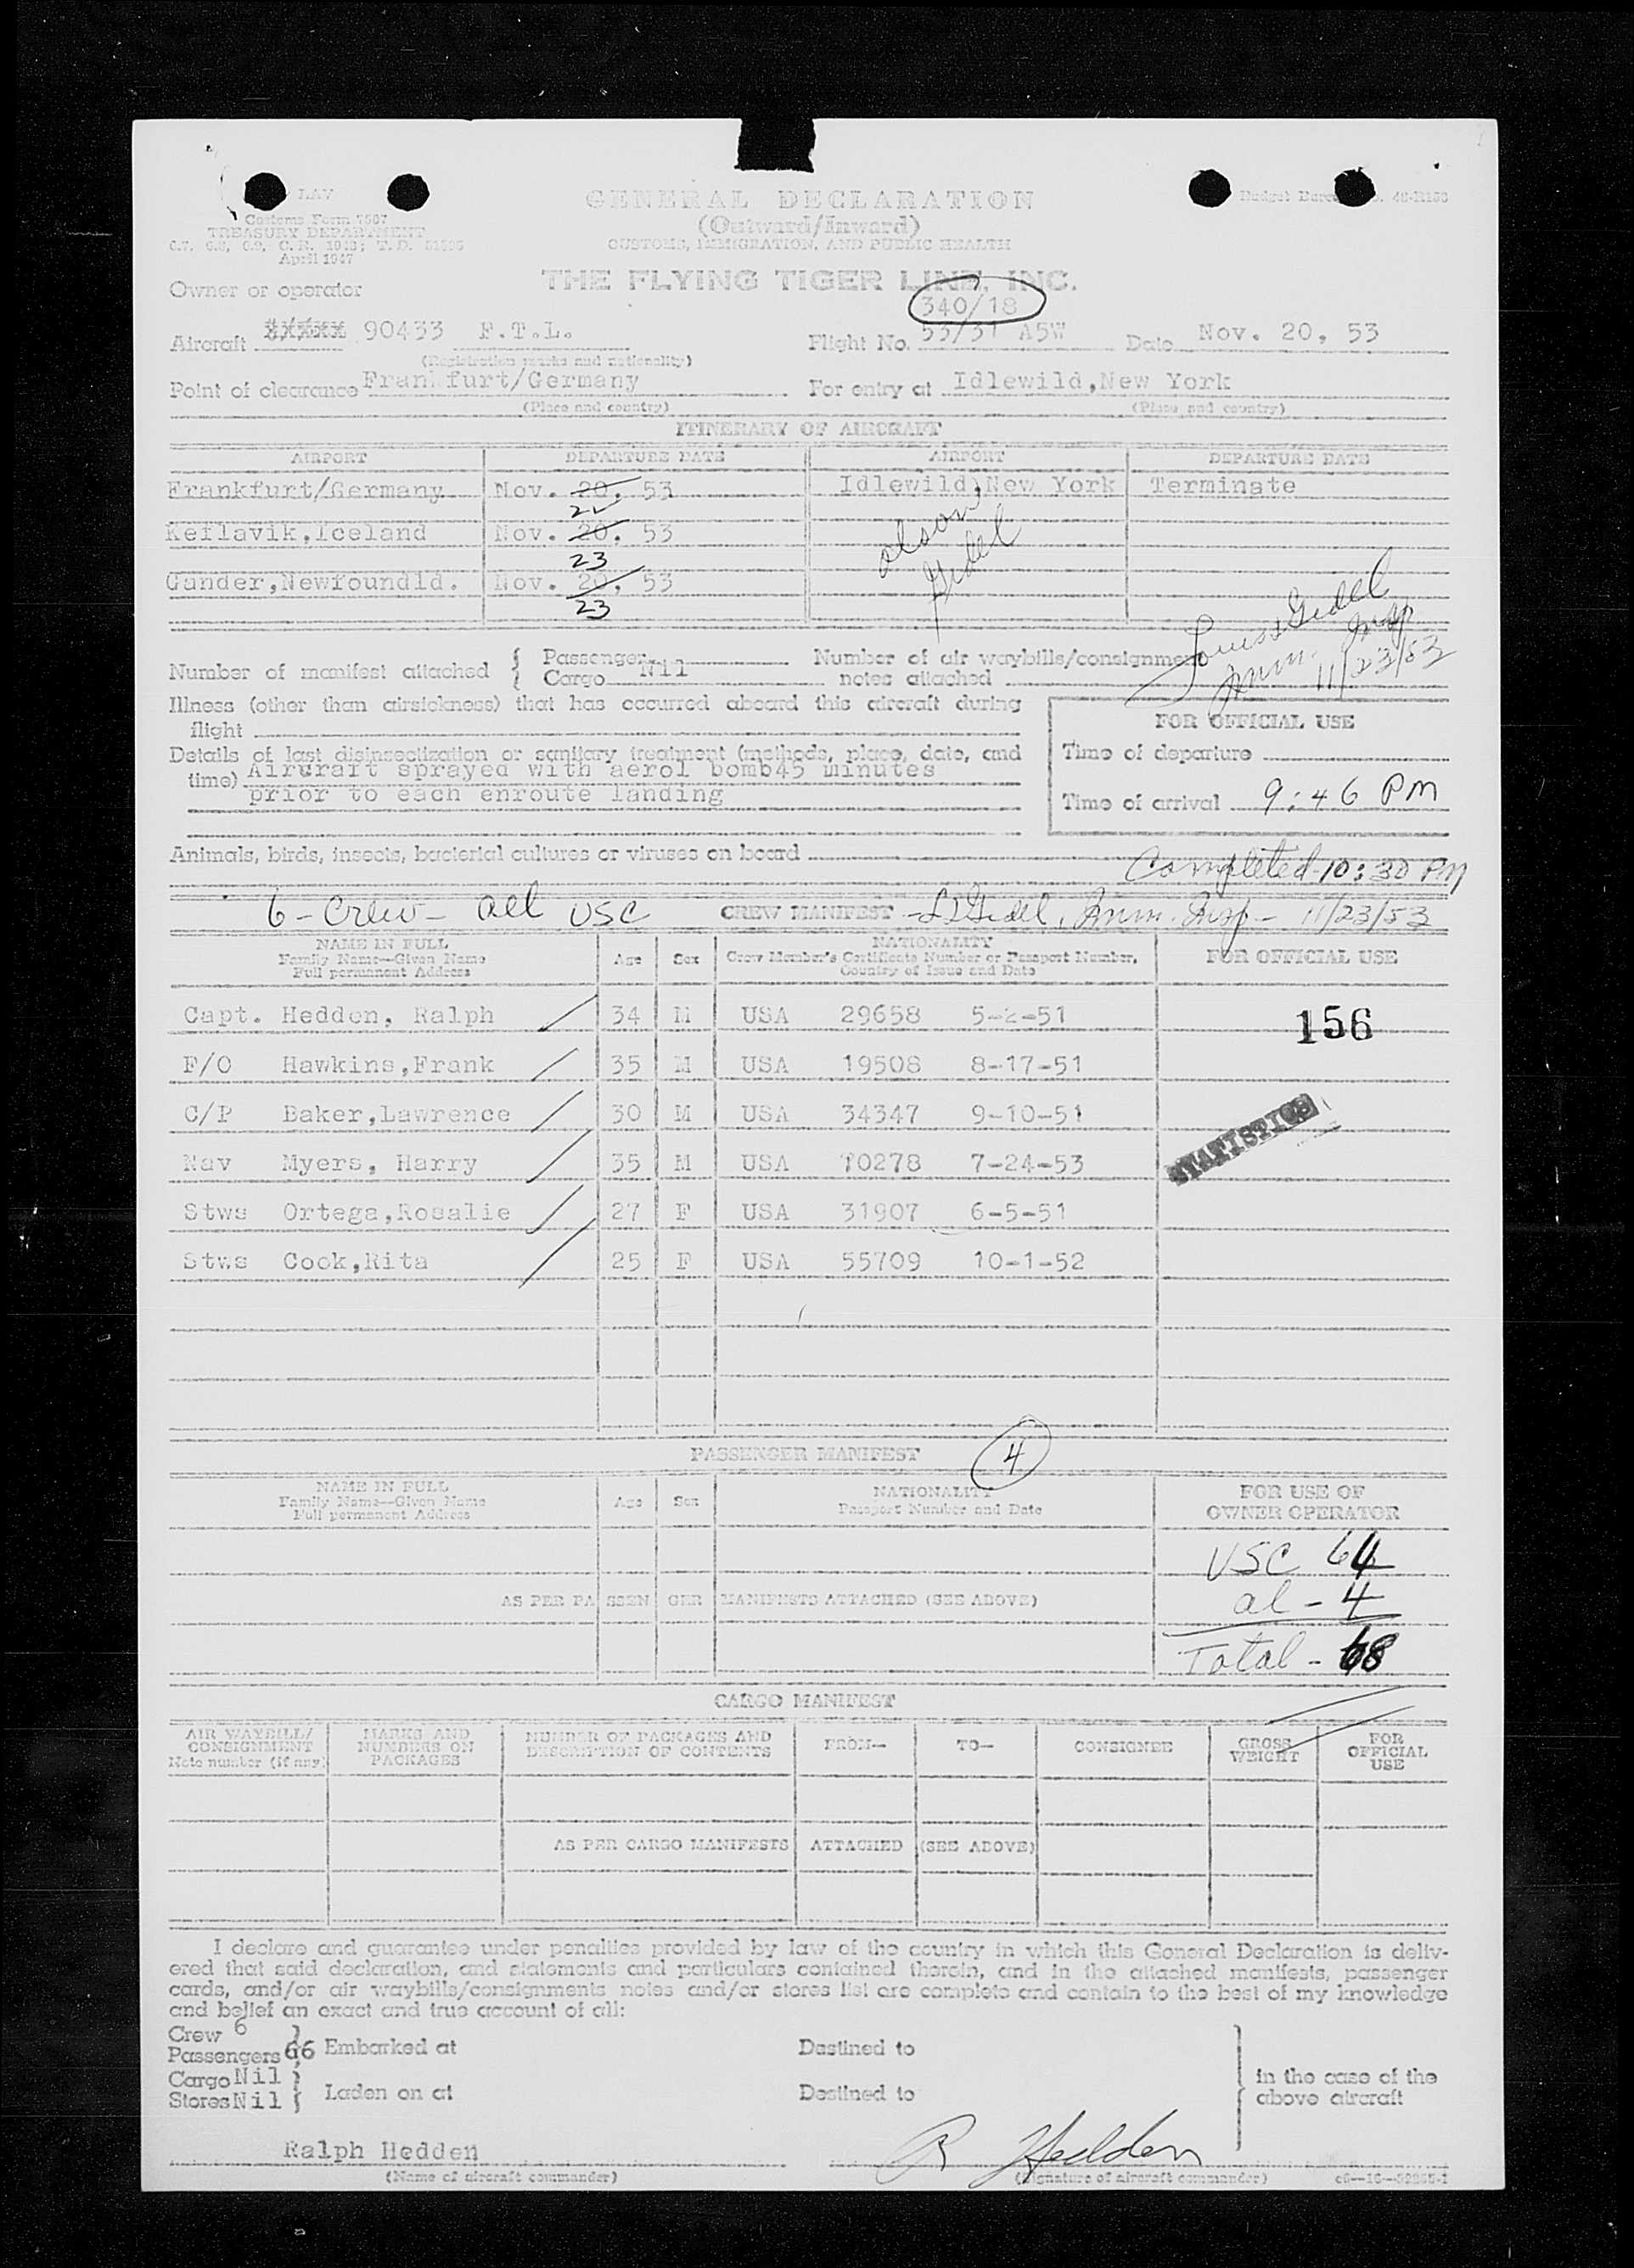 LAV
Customs Form 7507
TREASURY DEPARTMENT
April 1947
GENERAL DECLARATION
(Outward/Inward)
CUSTOMS, IMMIGRATION, AND PUBLIC HEALTH
Owner or operator THE FLYING TIGER LINE, INC.
340/18
Aircraft 90433 F.T.L. Flight No. 53/31 A5W Date Nov. 20, 53
(Registration marks and nationality)
Point of clearance Frankfurt/Germany For entry at Idlewild,New York
(Place and country) (Place and country)
ITINERARY OF AIRCRAFT
AIRPORT DEPARTURE DATE AIRPORT DEPARTURE DATE
Frankfurt/Germany Nov. 20, 53 Idlewild,New York Terminate
22
Keflavik,Iceland Nov. 20, 53
23
Gander,Newfoundld. Nov. 20, 53
23
Olson
Gidel
Louis Gidel
Imm. Insp
11/23/53
Number of manifest attached { Passenger Nil Number of air waybills/consignment
Cargo notes attached
Illness (other than airsickness) that has occurred aboard this aircraft during
flight
FOR OFFICIAL USE
Details of last disinsectization or sanitary treatment (methods, place, date, and
time) Aircraft sprayed with aerol bomb45 minutes
prior to each enroute landing
Time of departure
Time of arrival 9:46 PM
Animals, birds, insects, bacterial cultures or viruses on board
Completed-10:30 PM
6 - Crew - all USC CREW MANIFEST - LJ Gidel, Imm. Insp - 11/23/53
NAME IN FULL
Family Name—Given Name
Full permanent Address
Age Sex
NATIONALITY
Crew Member's Certificate Number or Passport Number,
Country of Issue and Date
FOR OFFICIAL USE
Capt. Hedden, Ralph 34 M USA 29658 5-2-51
156
F/O Hawkins,Frank 35 M USA 19508 8-17-51
C/P Baker,Lawrence 30 M USA 34347 9-10-51
STATISTICS
Nav Myers, Harry 35 M USA 10278 7-24-53
Stws Ortega,Rosalie 27 F USA 31907 6-5-51
Stws Cook,Rita 25 F USA 55709 10-1-52
PASSENGER MANIFEST 4
NAME IN FULL
Family Name—Given Name
Full permanent Address
Age Sex
NATIONALITY
Passport Number and Date
FOR USE OF
OWNER OPERATOR
USC 64
AS PER PASSENGER MANIFESTS ATTACHED (SEE ABOVE)
al - 4
Total - 68
CARGO MANIFEST
AIR WAYBILL/
CONSIGNMENT
Note number (if any)
MARKS AND
NUMBERS ON
PACKAGES
NUMBER OF PACKAGES AND
DESCRIPTION OF CONTENTS
FROM—
TO—
CONSIGNEE
GROSS
WEIGHT
FOR
OFFICIAL
USE
AS PER CARGO MANIFESTS ATTACHED (SEE ABOVE)
I declare and guarantee under penalties provided by law of the country in which this General Declaration is deliv-
ered that said declaration, and statements and particulars contained therein, and in the attached manifests, passenger
cards, and/or air waybills/consignments notes and/or stores list are complete and contain to the best of my knowledge
and belief an exact and true account of all:
Crew 6
Passengers 66 Embarked at Destined to
Cargo Nil
Stores Nil Laden on at Destined to
in the case of the
above aircraft
Ralph Hedden R Hedden
(Name of aircraft commander) (Signature of aircraft commander)